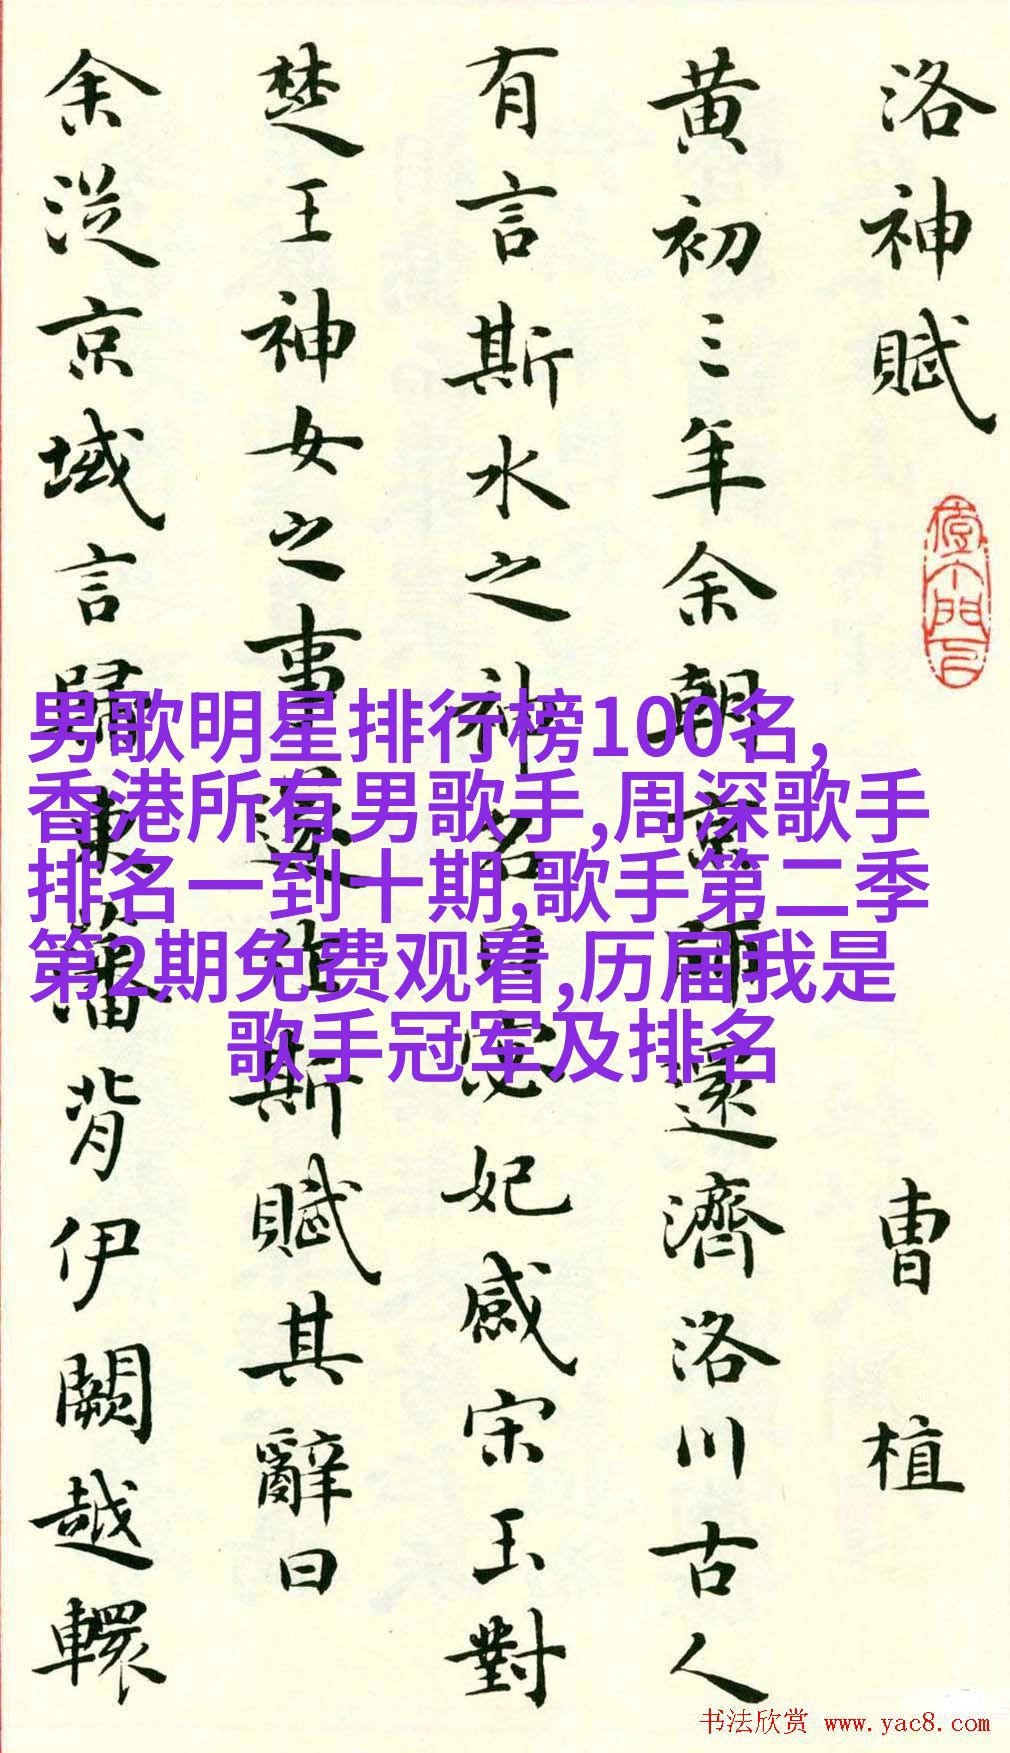 洛神賦
曹植
黃初三年余朝京師還濟洛川古人
有言斯水之神名曰宓妃感宋玉對
楚王神女之事遂作斯賦其辭曰
余從京域言歸東藩背伊闕越轘
男歌明星排行榜100名,
香港所有男歌手,周深歌手
排名一到十期,歌手第二季
第2期免费观看,历届我是
歌手冠军及排名
书法欣赏 www.yac8.com